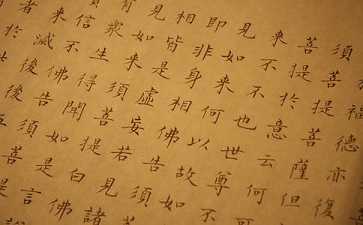 須福德亦復
須菩提菩薩但
善提於意云何
來不不也世尊不可
見如來何以故如
即非身相佛告須
相皆是虛妄若見諸
見如來須菩提白佛
有眾生得聞如是言
信不佛告須菩
來滅後後
者於此